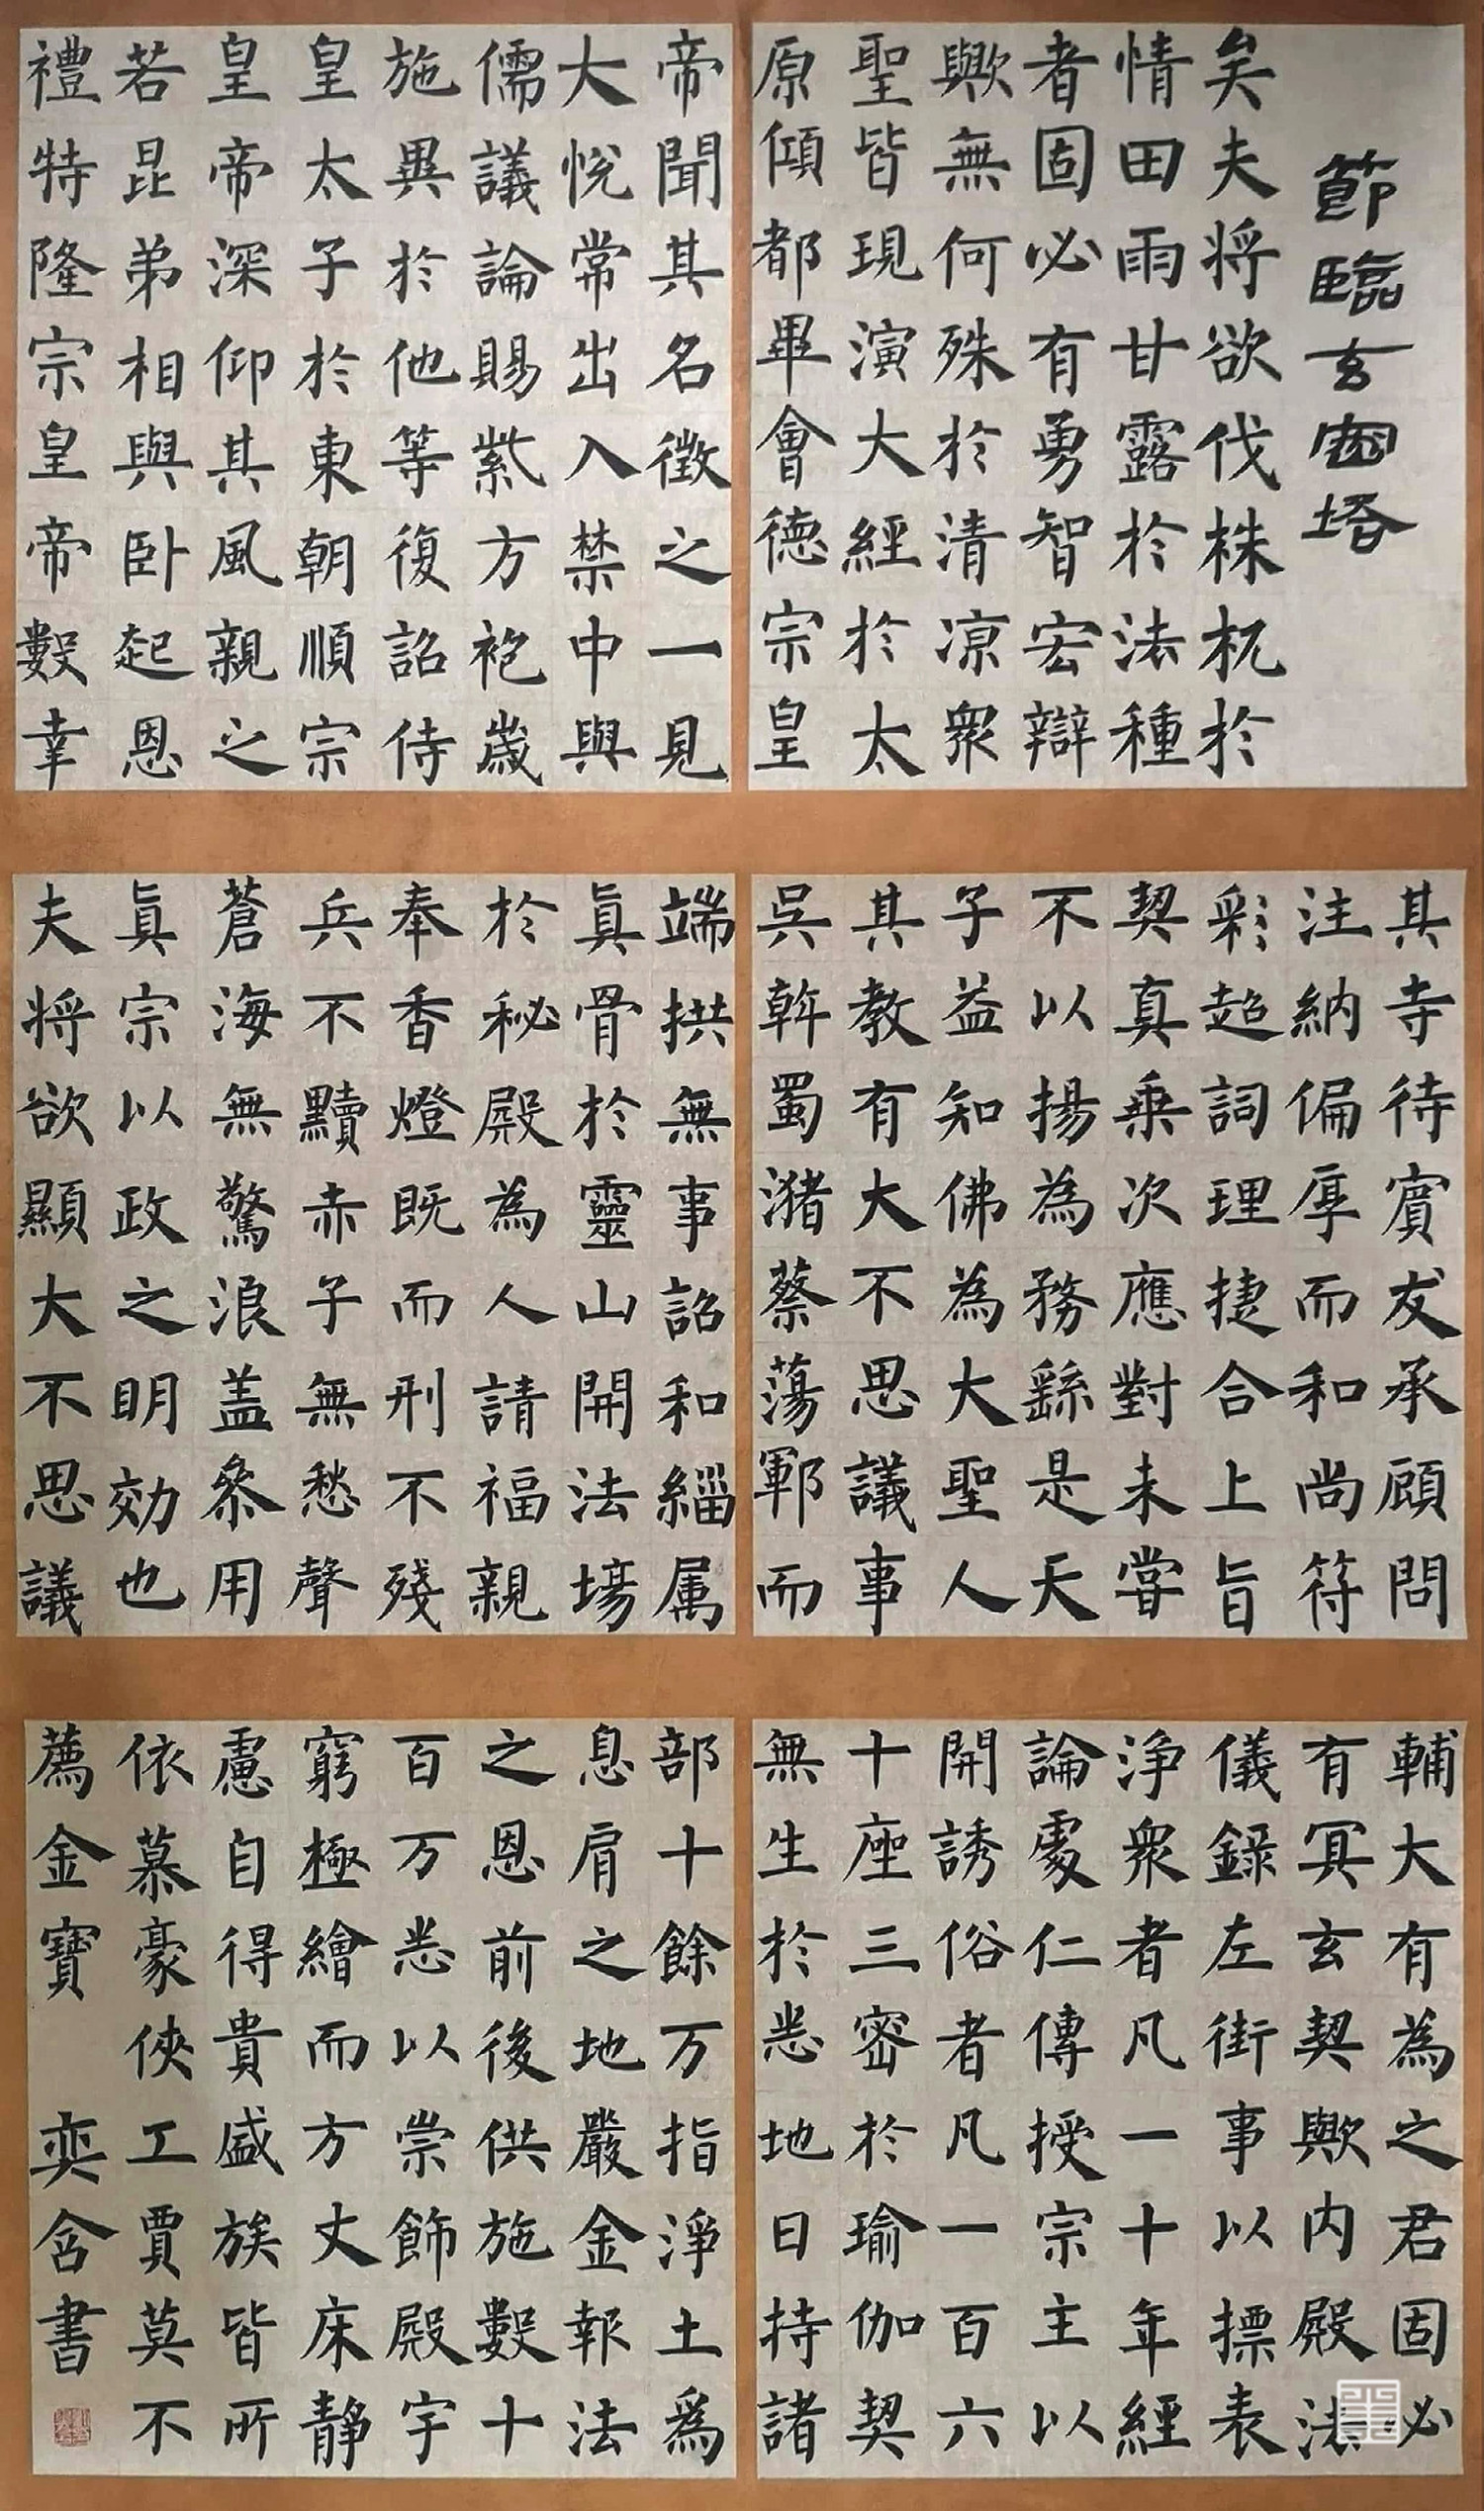 節臨玄密塔
矣夫將欲伐株杌於
情田雨甘露於法種
者固必有勇智宏辯
歟無何殊於清凉衆
聖皆現演大經於太
原傾都畢會德宗皇
帝聞其名徵之一見
大悅常出入禁中與
儒議論賜紫方袍歲
施異於他等復詔侍
皇太子於東朝順宗
皇帝深仰其風親之
若昆弟相與卧起恩
禮特隆宗皇帝數幸
其寺待賓友承顧問
注納偏厚而和尚符
彩超詞理捷合上旨
契真乘次應對未嘗
不以揚為務繇是天
子益知佛為大聖人
其教有大不思議事
吳斡蜀瀦蔡蕩鄆而
端拱無事詔和緇属
真骨於靈山開法場
於秘殿為人請福親
奉香燈既而刑不殘
兵不黷赤子無愁聲
蒼海無驚浪盖叅用
真宗以政之明効也
夫將欲顯大不思議
輔大有為之君固必
有冥玄契歟内殿法
儀錄左街事以摽表
淨衆者凡一十年經
論處仁傳授宗主以
開誘俗者凡一百六
十座三密於瑜伽契
無生於悉地日持諸
部十餘万指淨土為
息肩之地嚴金報法
之恩前後供施數十
百万悉以崇飾殿宇
窮極繪而方丈床静
慮自得貴盛族皆所
依慕豪俠工賈莫不
薦金寶 奕含書